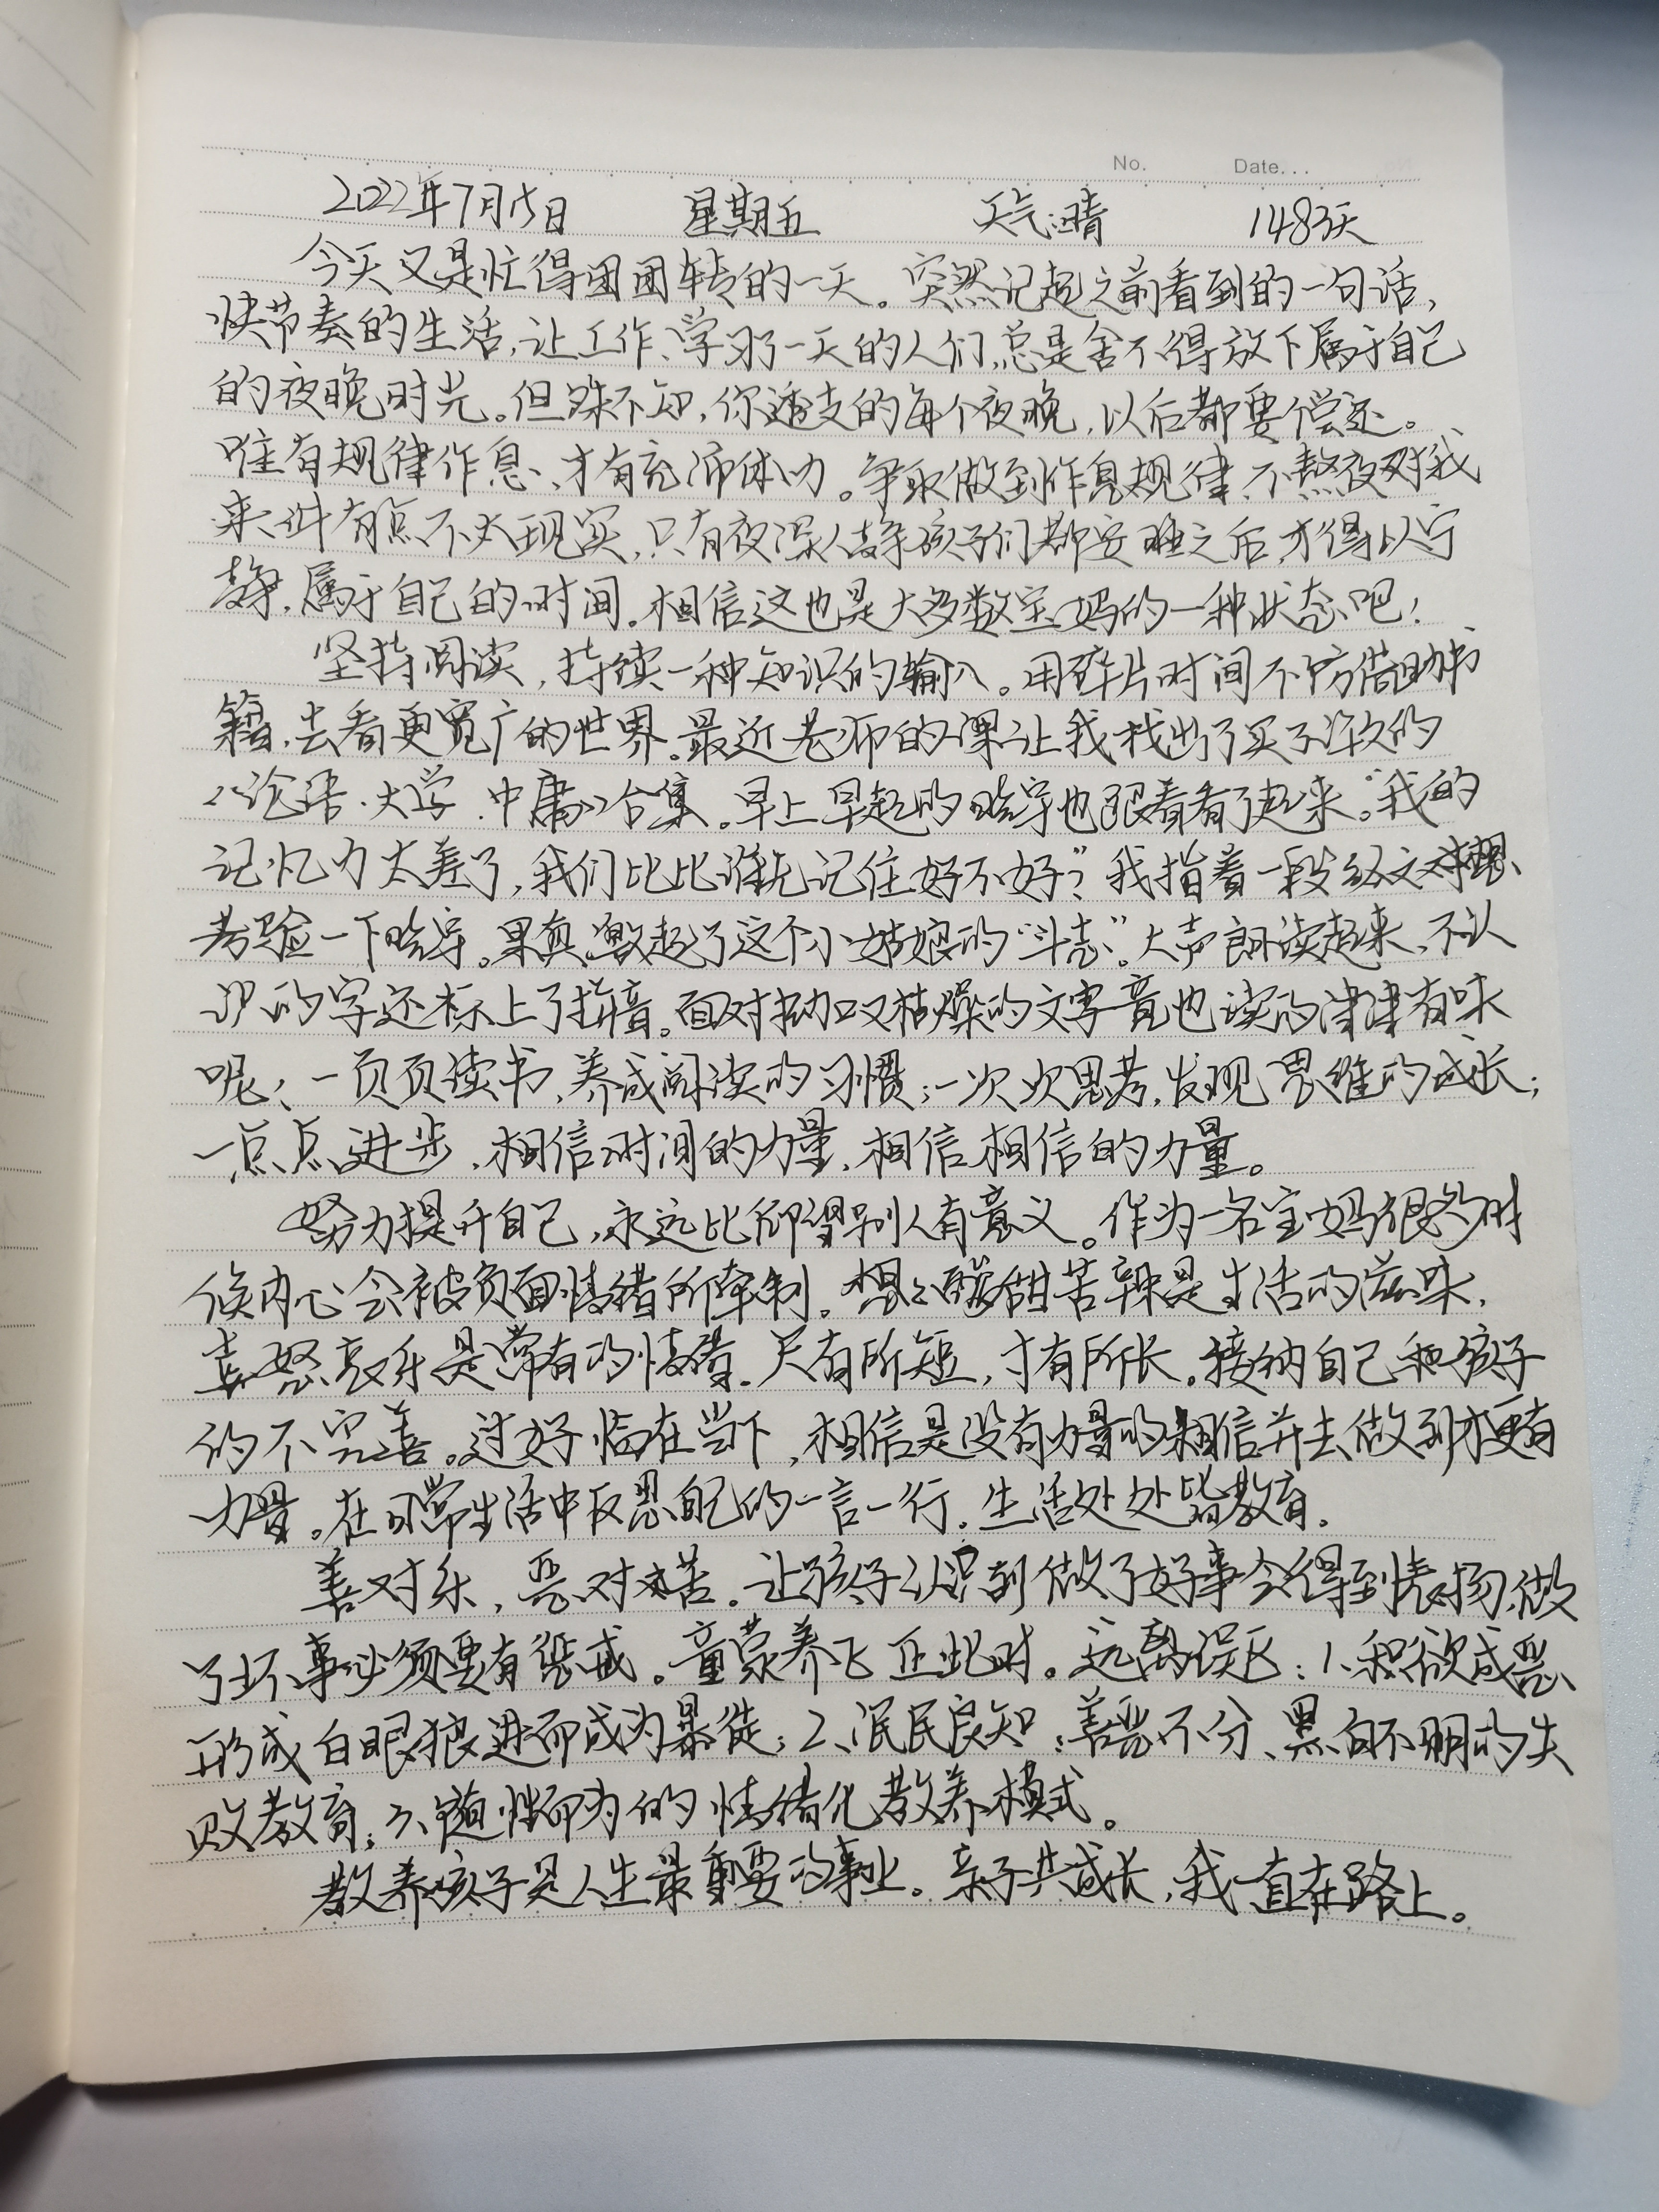 No. Date...
2022年7月15日 星期五 天气:晴 1483天
今天又是忙得团团转的一天。突然记起之前看到的一句话,
快节奏的生活,让工作、学习了一天的人们,总是舍不得放下属于自己
的夜晚时光。但殊不知,你透支的每个夜晚,以后都要偿还。
唯有规律作息、才有充沛体力。争取做到作息规律、不熬夜对我
来讲有点不太现实,只有夜深人静孩子们都安睡之后,才得以宁
静,属于自己的时间。相信这也是大多数宝妈的一种状态吧!
坚持阅读,持续一种知识的输入。用碎片时间不妨借助书
籍,去看更宽广的世界。最近老师的课让我找出了买了许久的
《论语·大学·中庸》合集。早上早起的晗宇也跟着看了起来。“我的
记忆力太差了,我们比比谁先记住好不好?”我指着一段经文对想
考验一下晗宇。果真激起了这个小姑娘的“斗志”。大声朗读起来,不认
识的字还标上了拼音。面对拗口又枯燥的文字竟也读的津津有味
呢!一页页读书,养成阅读的习惯;一次次思考,发现思维的成长;
一点点进步,相信时间的力量,相信相信的力量。
努力提升自己,永远比仰望别人有意义。作为一名宝妈很多时
候内心会被负面情绪所牵制。想想酸甜苦辣是生活的滋味,
喜怒哀乐是常有的情绪。尺有所短,寸有所长。接纳自己和孩子
的不完善。过好临在当下,相信是没有力量的相信并去做到才更有
力量。在日常生活中反思自己的一言一行。生活处处皆教育。
善对乐,恶对苦。让孩子认识到做了好事会得到表扬,做
了坏事必须要有惩戒。童蒙养正正此时。远离误区:1、积欲成恶、
形成白眼狼进而成为暴徒;2、泯民良知:善恶不分、黑白不明的失
败教育;3、随性而为的情绪化教养模式。
教养孩子是人生最重要的事业。亲子共成长,我一直在路上。